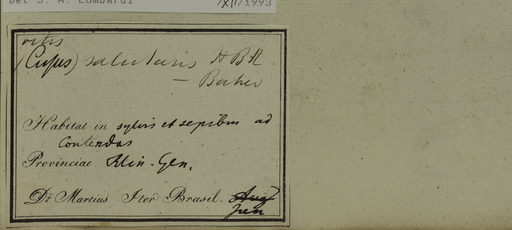 Det J. A. Lombardi /XII/1993
vitis
(Cissus) salutaris H B K
— Baker
Habitat in sylvis et sepibus ad
Contendas
Provinciae Min. Gen.
Dr. Martius Iter Brasil. Aug
Jun